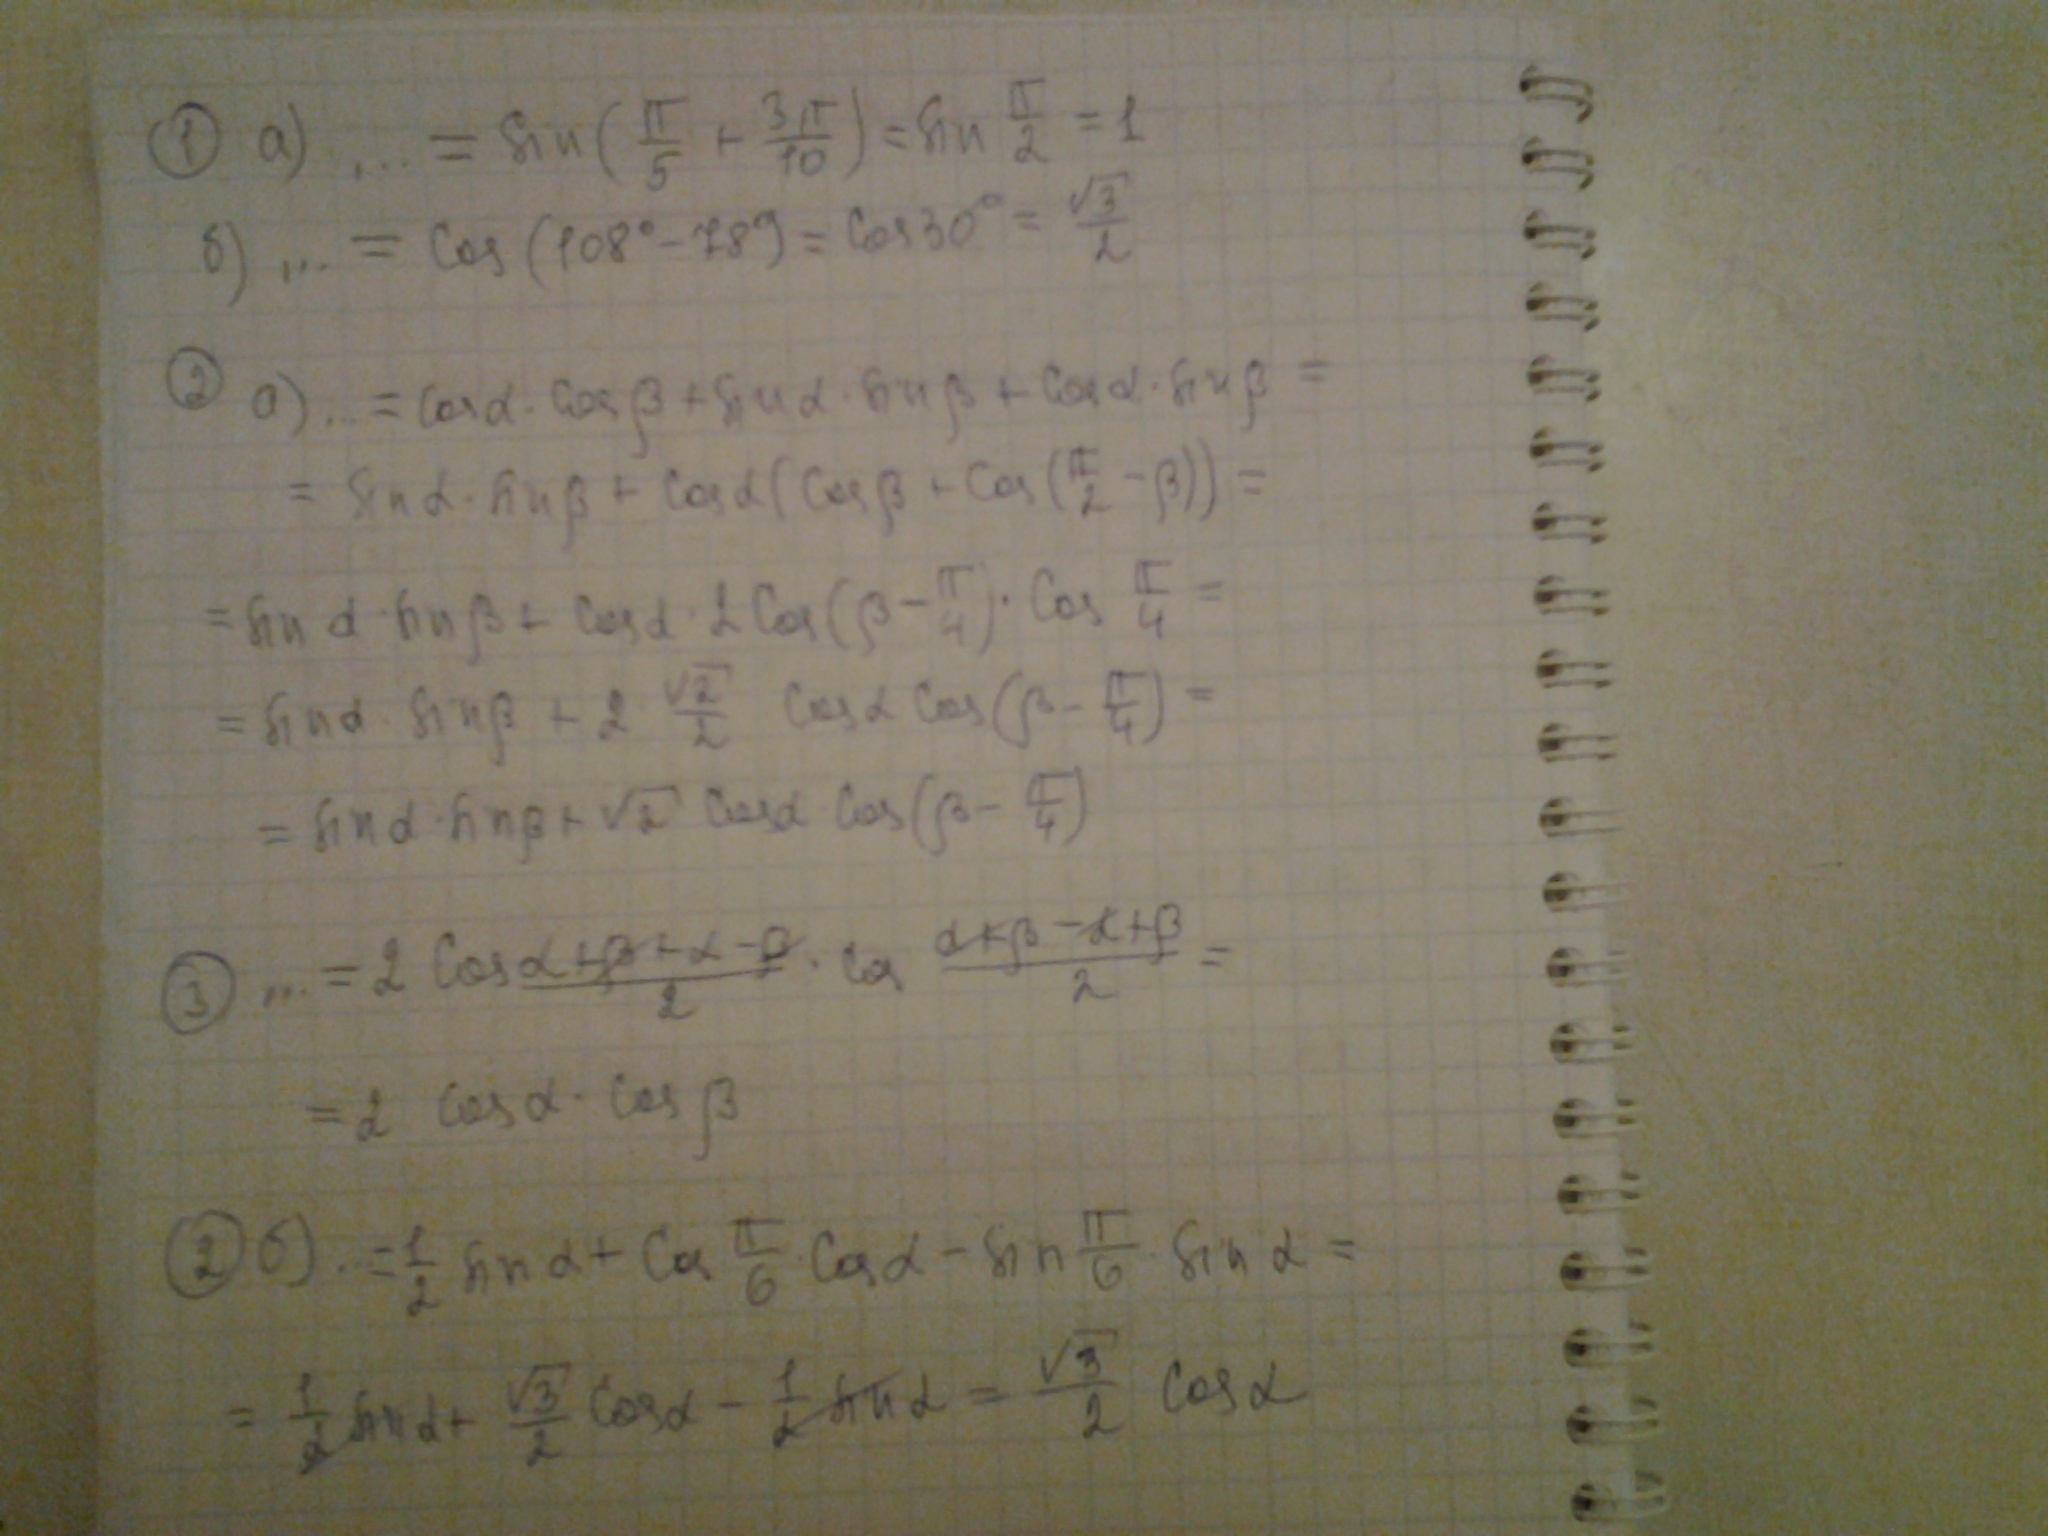 ① а) ... = sin(π/5 + 3π/10) = sin π/2 = 1
б) ... = cos(108° - 78°) = cos30° = √3/2
② а) ... = cosα · cosβ + sinα · sinβ + cosα · sinβ =
= sinα · sinβ + cosα(cosβ + cos(π/2 - β)) =
= sinα · sinβ + cosα · 2cos(β - π/4) · cos π/4 =
= sinα · sinβ + 2 √2/2 cosα cos(β - π/4) =
= sinα · sinβ + √2 cosα cos(β - π/4)
③ ... = 2 cos (α+β+α-β)/2 · cos (α+β-α+β)/2 =
= 2 cosα · cosβ
② б) ... = 1/2 sinα + cos π/6 · cosα - sin π/6 · sinα =
= 1/2 sinα + √3/2 cosα - 1/2 sinα = √3/2 cosα